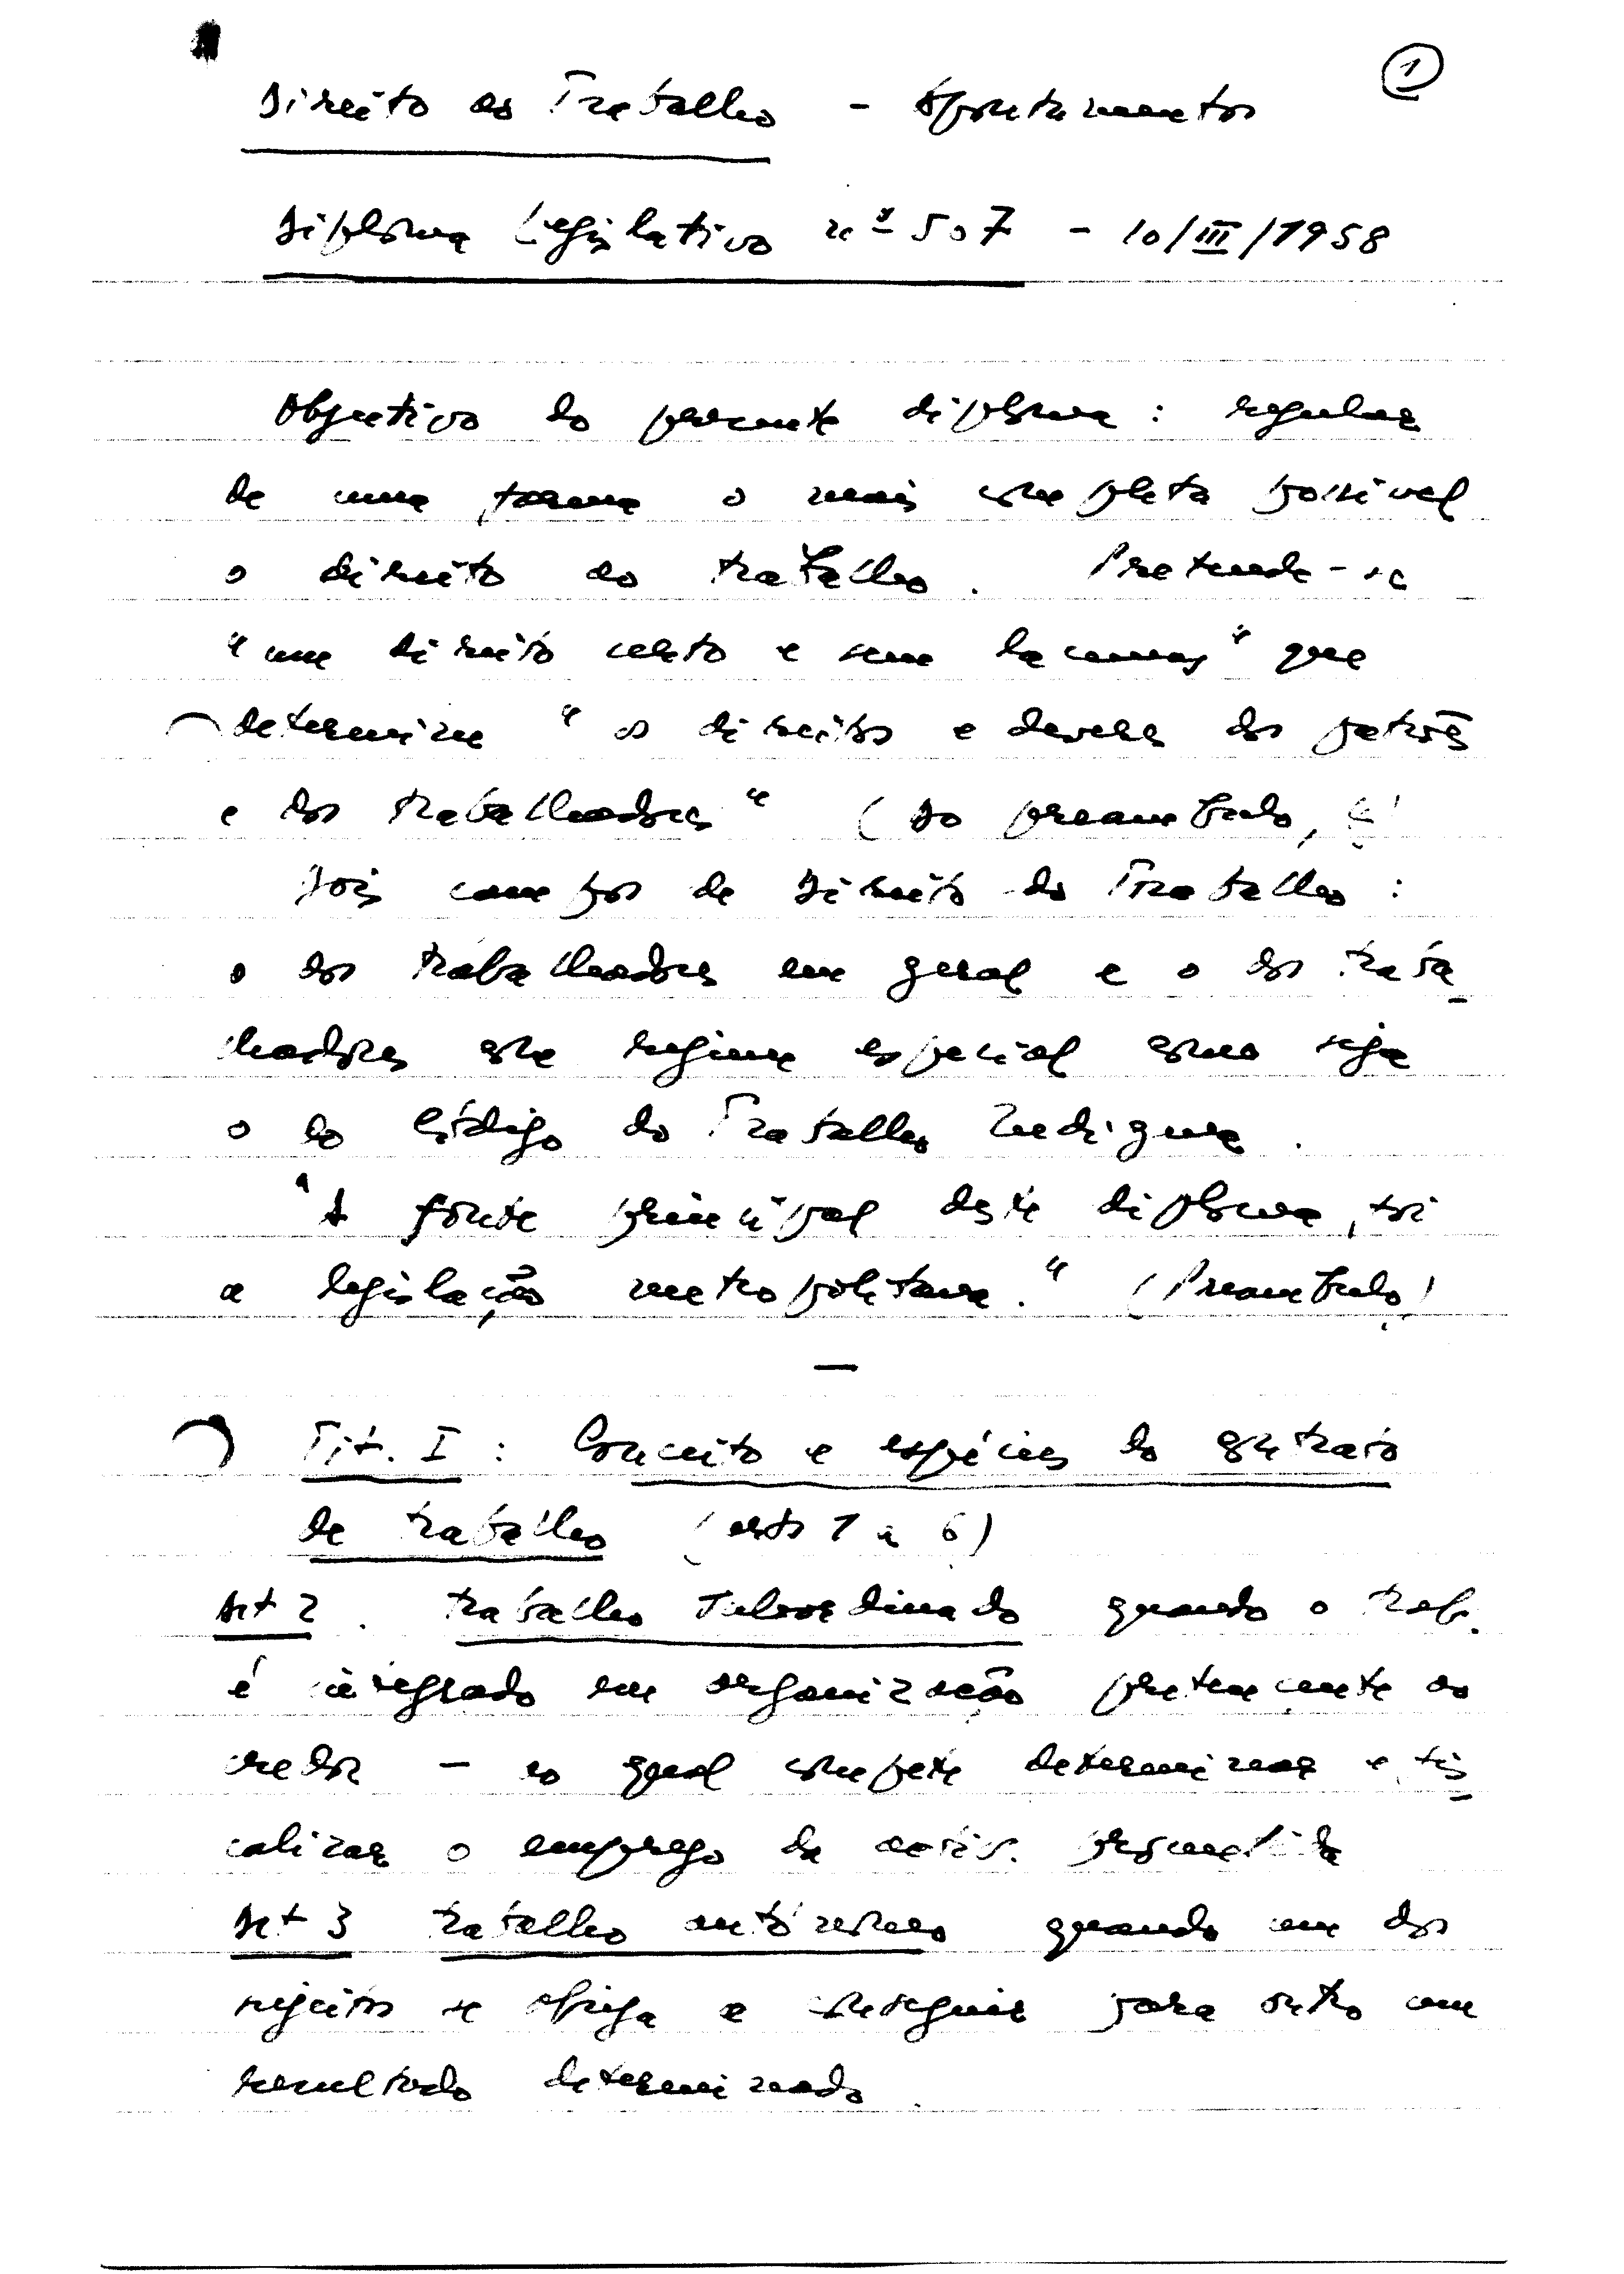 1
Direito do Trabalho - Apontamentos
Diploma Legislativo nº 507 - 10/III/1958
Objectivo do presente diploma: regular
de uma forma o mais completa possivel
o direito do trabalho. Pretende-se
"um direito certo e sem lacunas" que
determine "os direitos e deveres dos patrões
e dos trabalhadores" (Do preambulo,
Dois campos de Direito do Trabalho:
o dos trabalhadores em geral e o dos traba_
lhadores com regime especial como seja
o do Código do Trabalho Indigena.
"A fonte principal deste diploma, foi
a legislação metropolitana." (Preambulo)
—
Tit. I: Conceito e espécies do contrato
de trabalho (arts 1 a 6)
Art 2. Trabalho Subordinado quando o trab.
é integrado em organização pretencente ao
credor - ao qual compete determinar e fis_
calizar o emprego da activ. prometida
Art 3 trabalho autónomo quando um dos
sujeitos se obriga a conseguir para outro um
resultado determinado.